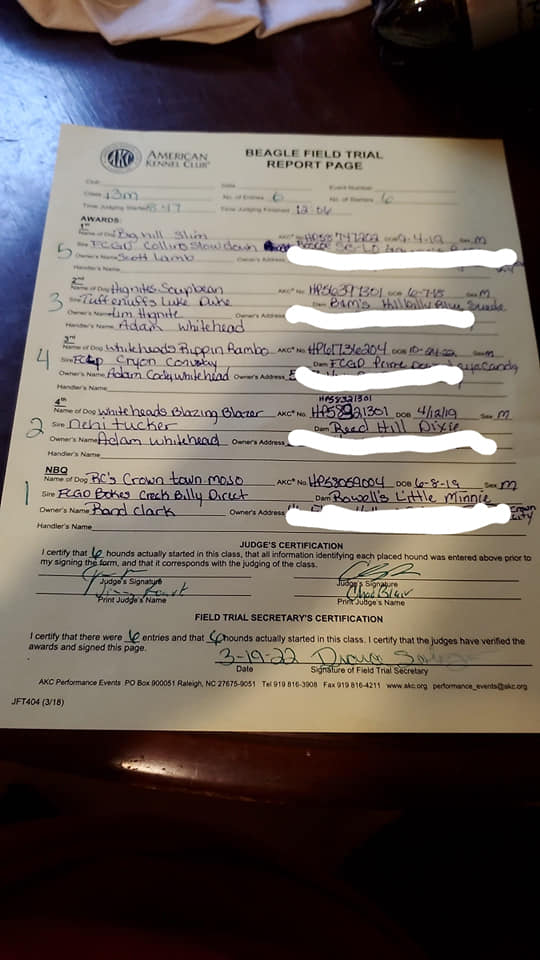 AKC AMERICAN KENNEL CLUB®
BEAGLE FIELD TRIAL
REPORT PAGE
Club
Date
Event Number
Class 13m No. of Entries 6 No. of Starters 6
Time Judging Started 8:47 Time Judging Finished 12:06
AWARDS:
1st
Name of Dog Big Hill Slim AKC® No. DOB 9-4-19 Sex M
5 Sire FCGD Collins Slowdown
Owner's Name Scott Lamb Owner's Address
Handler's Name
2nd
Name of Dog Hignites Soupbean AKC® No. HP56397301 DOB 6-7-15 Sex M
3 Sire Tuffenuff's Luke Duke Dam Bam's Hillbilly Blue Suede
Owner's Name Jim Hignite Owner's Address
Handler's Name Adam Whitehead
3rd
Name of Dog Whiteheads Rippin Rambo AKC® No. HP61736204 DOB Sex m
4 Sire Dam FCGD
Owner's Name Adam Cody Whitehead Owner's Address
Handler's Name
4th HP58321301
Name of Dog Whiteheads Blazing Blazer AKC® No. DOB 4/12/19 Sex M
2 Sire Nehi tucker Dam Reed Hill Dixie
Owner's Name Adam Whitehead Owner's Address
Handler's Name
NBQ
Name of Dog RC's Crown town moso AKC® No. HP58059004 DOB 6-8-19 Sex m
1 Sire FCGD Bokes Creek Billy Direct Dam Rowell's Little Minnie
Owner's Name Rand Clark Owner's Address Crown City
Handler's Name
JUDGE'S CERTIFICATION
I certify that 6 hounds actually started in this class, that all information identifying each placed hound was entered above prior to
my signing the form, and that it corresponds with the judging of the class.
Judge's Signature Judge's Signature
Chad Blair
Print Judge's Name Print Judge's Name
FIELD TRIAL SECRETARY'S CERTIFICATION
I certify that there were 6 entries and that 6 hounds actually started in this class. I certify that the judges have verified the
awards and signed this page.
3-19-22
Date Signature of Field Trial Secretary
AKC Performance Events PO Box 900051 Raleigh, NC 27675-9051 Tel 919 816-3908 Fax 919 816-4211 www.akc.org performance_events@akc.org
JFT404 (3/18)